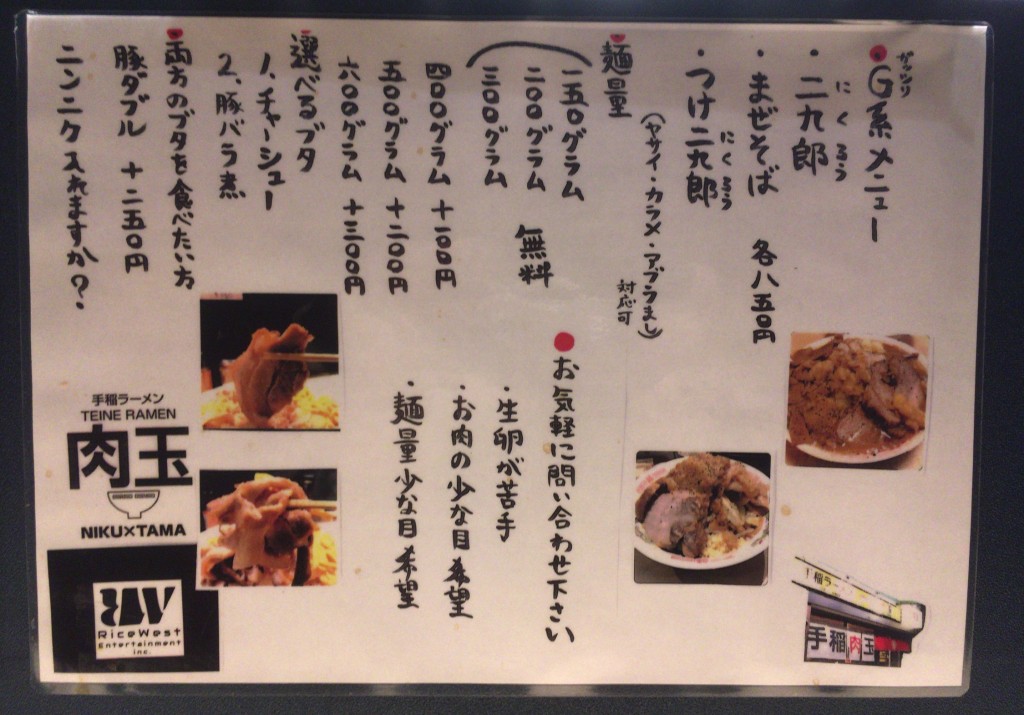 ガッツリ
G系メニュー
・二九郎
にくろう
・まぜそば 各八五〇円
・つけ二九郎
にくろう
(ヤサイ・カラメ・アブラまし)
対応可
麺量
一五〇グラム
二〇〇グラム 無料
三〇〇グラム
四〇〇グラム +一〇〇円
五〇〇グラム +二〇〇円
六〇〇グラム +三〇〇円
選べるブタ
1、チャーシュー
2、豚バラ煮
両方のブタを食べたい方
豚ダブル +二五〇円
ニンニク入れますか?
お気軽に問い合わせ下さい
・生卵が苦手
・お肉の少な目希望
・麺量少な目希望
手稲ラーメン
TEINE RAMEN
肉玉
NIKU×TAMA
RW
RiceWest
Entertainment
inc.
稲ラー
手稲肉玉